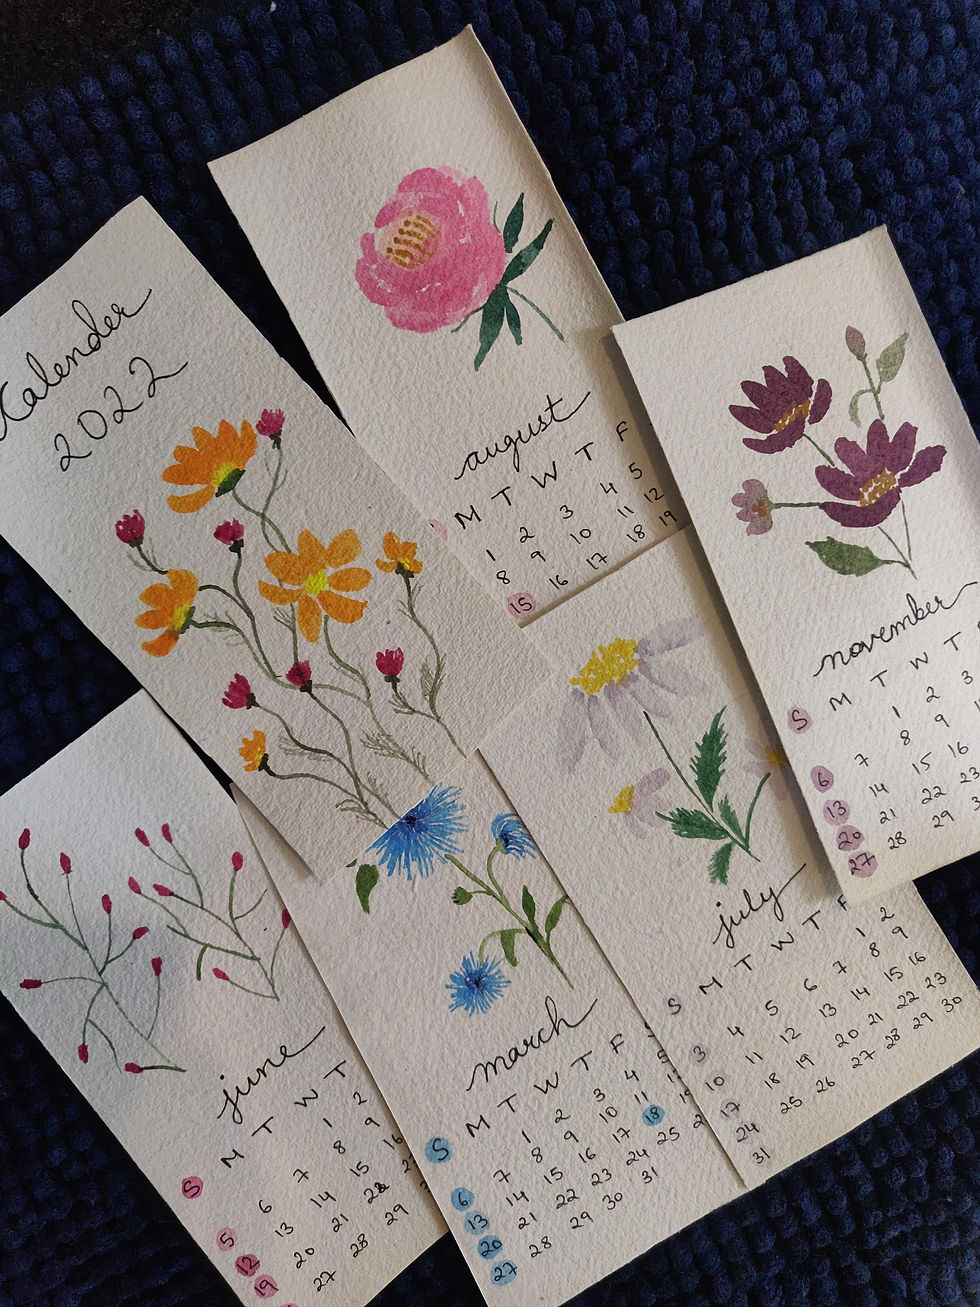 Kalender
2022
august
M T W T F
1 2 3 4 5
8 9 10 11 12
15 16 17 18 19
november
S M T W T
1 2 3
6 7 8 9
13 14 15 16
20 21 22 23
27 28 29
july
S M T W T F
1 2
3 4 5 6 7 8 9
10 11 12 13 14 15 16
17 18 19 20 21 22 23
24 25 26 27 28 29 30
31
march
S M T W T F
1 2 3 4 5
6 7 8 9 10 11 12
13 14 15 16 17 18 19
20 21 22 23 24 25
27 28 29 30 31
june
S M T W T
1 2
5 6 7 8 9
12 13 14 15 16
19 20 21 22
27 28 29